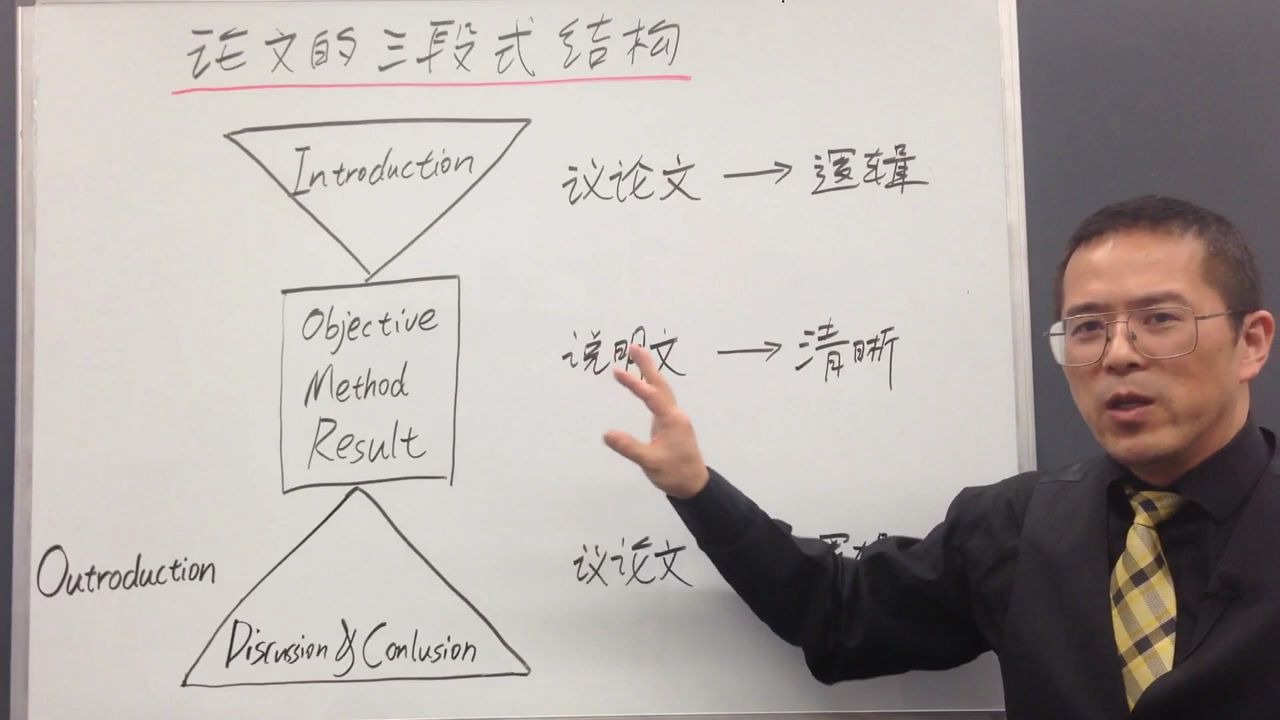 论文的三段式结构
Introduction
议论文 → 逻辑
Objective
Method
Result
说明文 → 清晰
Outroduction
议论文
Discussion & Conlusion